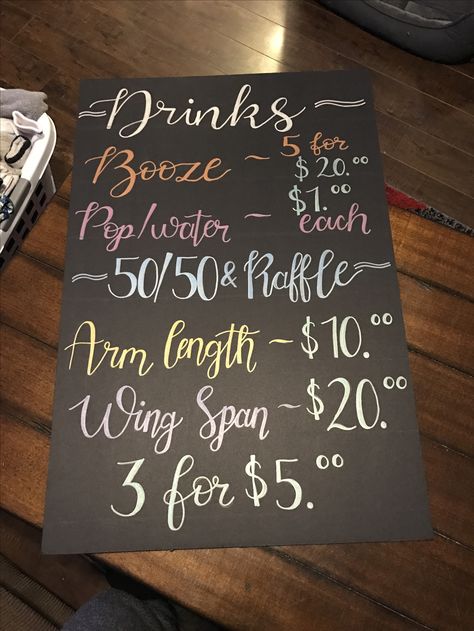 ~Drinks~
Booze ~ 5 for $20.00
Pop/water ~ $1.00 each
~50/50 & Raffle~
Arm length ~ $10.00
Wing Span ~ $20.00
3 for $5.00